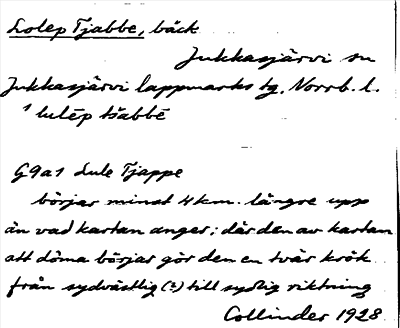 Lolep Tjabbe, bäck
Jukkasjärvi sn
Jukkasjärvi lappmarks tg. Norrb. l.
' lulēp tšabbē
G9a1 Lule Tjappe
börjar minst 4 km. längre upp
än vad kartan anger; där den av kartan
att döma börjar gör den en tvär krök
från sydvästlig (:) till sydlig riktning
Collinder 1928